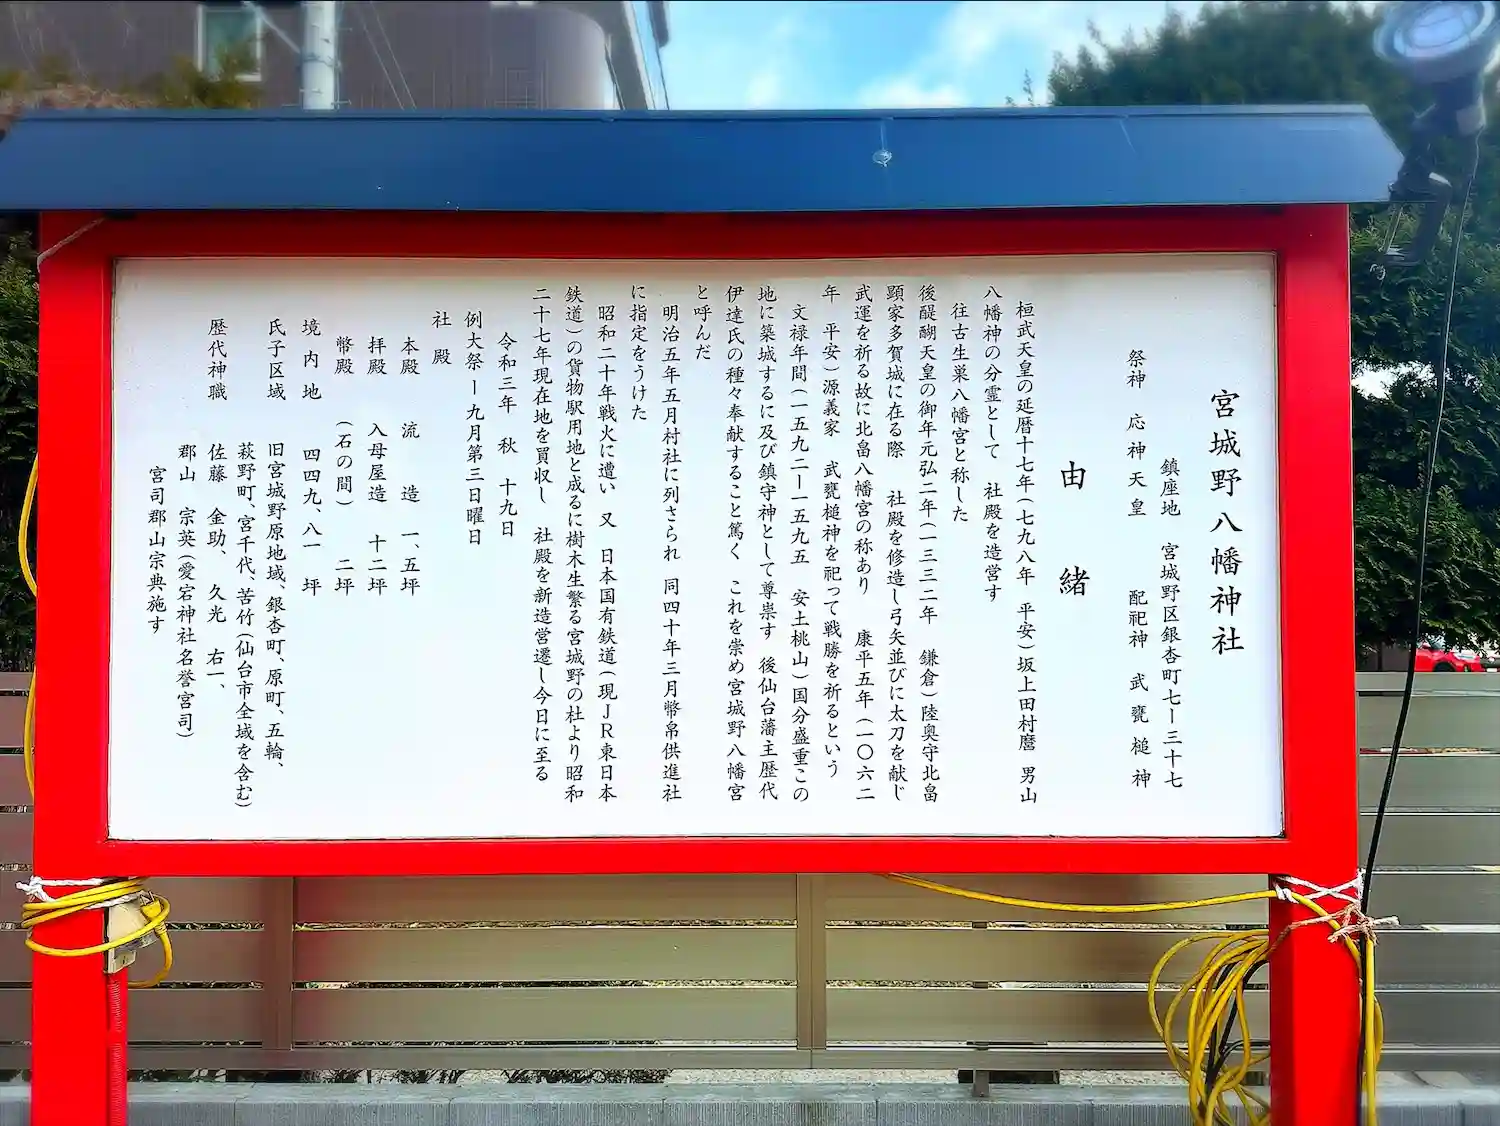 宮城野八幡神社
鎮座地　宮城野区銀杏町七ー三十七
祭神　応神天皇　　配祀神　武甕槌神
由緒
桓武天皇の延暦十七年（七九八年　平安）坂上田村麿　男山
八幡神の分霊として　社殿を造営す
往古生巣八幡宮と称した
後醍醐天皇の御年元弘二年（一三三二年　鎌倉）陸奥守北畠
顕家多賀城に在る際　社殿を修造し弓矢並びに太刀を献じ
武運を祈る故に北畠八幡宮の称あり　康平五年（一〇六二
年　平安）源義家　武甕槌神を祀って戦勝を祈るという
文禄年間（一五九二ー一五九五　安土桃山）国分盛重この
地に築城するに及び鎮守神として尊崇す　後仙台藩主歴代
伊達氏の種々奉献すること篤く　これを崇め宮城野八幡宮
と呼んだ
明治五年五月村社に列さられ　同四十年三月幣帛供進社
に指定をうけた
昭和二十年戦火に遭い　又　日本国有鉄道（現ＪＲ東日本
鉄道）の貨物駅用地と成るに樹木生繁る宮城野の杜より昭和
二十七年現在地を買収し　社殿を新造営遷し今日に至る
令和三年　秋　十九日
例大祭ー九月第三日曜日
社殿
本殿　　流　造　一、五坪
拝殿　　入母屋造　十二坪
幣殿　　（石の間）　二坪
境内地　　四四九、八一　坪
氏子区域　　旧宮城野原地域、銀杏町、原町、五輪、
萩野町、宮千代、苦竹（仙台市全域を含む）
歴代神職　　佐藤　金助、　久光　右一、
郡山　宗英（愛宕神社名誉宮司）
宮司郡山宗典施す